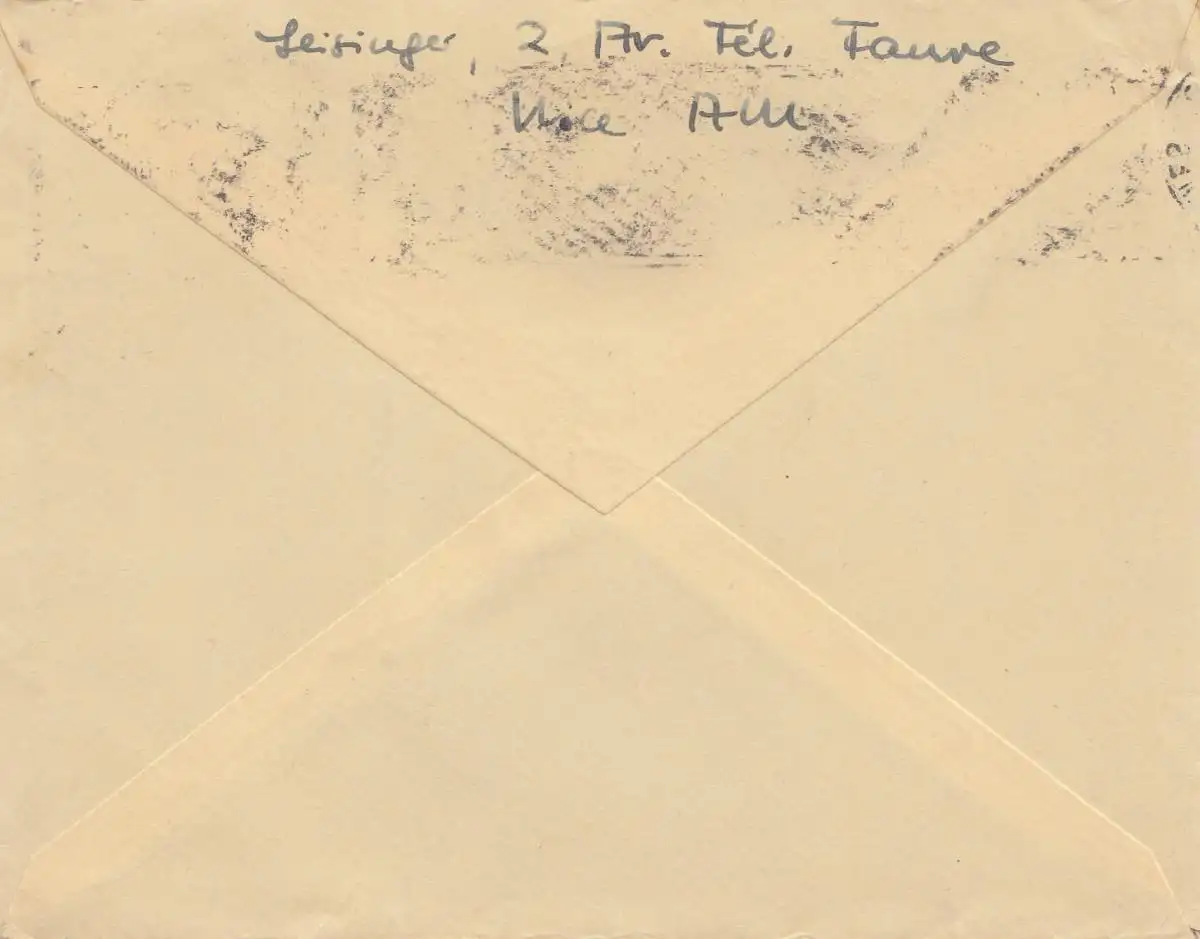 Leisinger, 2, Av. Fél. Faure
Nice AM